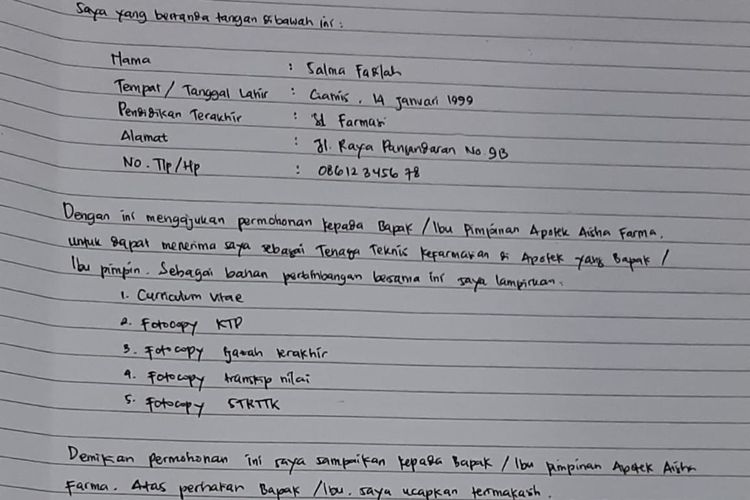 Saya yang bertanda tangan dibawah ini :
Nama : Salma Fadlah
Tempat / Tanggal Lahir : Ciamis, 14 Januari 1999
Pendidikan Terakhir : S1 Farmasi
Alamat : Jl. Raya Pangandaran No. 9B
No. Tlp / Hp : 086123456 78
Dengan ini mengajukan permohonan kepada Bapak / Ibu Pimpinan Apotek Aisha Farma.
untuk dapat menerima saya sebagai Tenaga Teknis kefarmasian di Apotek yang Bapak /
Ibu pimpin. Sebagai bahan pertimbangan bersama ini saya lampirkan.
1. Curriculum vitae
2. Fotocopy KTP
3. Fotocopy Ijazah terakhir
4. Fotocopy transkip nilai
5. Fotocopy STRTTK
Demikian Permohonan ini saya sampaikan kepada Bapak / Ibu pimpinan Apotek Aisha
Farma. Atas perhatian Bapak / Ibu. saya ucapkan terimakasih.